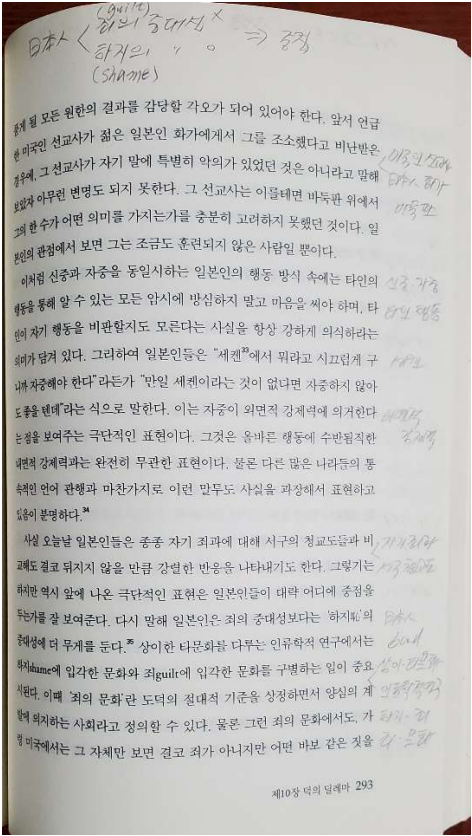 (guilt)
日本人 < 죄의 중대성 ×
하지의 〃 ○ ⇒ 중점
(shame)
품게 될 모든 원한의 결과를 감당할 각오가 되어 있어야 한다. 앞서 언급
한 미국인 선교사가 젊은 일본인 화가에게서 그를 조소했다고 비난받은
경우에, 그 선교사가 자기 말에 특별히 악의가 있었던 것은 아니라고 말해
보았자 아무런 변명도 되지 못한다. 그 선교사는 이를테면 바둑판 위에서
그의 한 수가 어떤 의미를 가지는가를 충분히 고려하지 못했던 것이다. 일
본인의 관점에서 보면 그는 조금도 훈련되지 않은 사람일 뿐이다.
이처럼 신중과 자중을 동일시하는 일본인의 행동 방식 속에는 타인의
행동을 통해 알 수 있는 모든 암시에 방심하지 말고 마음을 써야 하며, 타
인이 자기 행동을 비판할지도 모른다는 사실을 항상 강하게 의식하라는
의미가 담겨 있다. 그리하여 일본인들은 “세켄33에서 뭐라고 시끄럽게 구
니까 자중해야 한다”라든가 “만일 세켄이라는 것이 없다면 자중하지 않아
도 좋을 텐데”라는 식으로 말한다. 이는 자중이 외면적 강제력에 의거한다
는 점을 보여주는 극단적인 표현이다. 그것은 올바른 행동에 수반됨직한
내면적 강제력과는 완전히 무관한 표현이다. 물론 다른 많은 나라들의 통
속적인 언어 관행과 마찬가지로 이런 말투도 사실을 과장해서 표현하고
있음이 분명하다.34
사실 오늘날 일본인들은 종종 자기 죄과에 대해 서구의 청교도들과 비
교해도 결코 뒤지지 않을 만큼 강렬한 반응을 나타내기도 한다. 그렇기는
하지만 역시 앞에 나온 극단적인 표현은 일본인들이 대략 어디에 중점을
두는가를 잘 보여준다. 다시 말해 일본인은 죄의 중대성보다는 ‘하지恥’의
중대성에 더 무게를 둔다.35 상이한 타문화를 다루는 인류학적 연구에서는
하지shame에 입각한 문화와 죄guilt에 입각한 문화를 구별하는 일이 중요
시된다. 이때 ‘죄의 문화’란 도덕의 절대적 기준을 상정하면서 양심의 계
발에 의지하는 사회라고 정의할 수 있다. 물론 그런 죄의 문화에서도, 가
령 미국에서는 그 자체만 보면 결코 죄가 아니지만 어떤 바보 같은 짓을
미국인 선교사
日本人 화가
바둑판
신중·자중
타인 행동
세켄
외면적
강제력
자기 죄과
日本人
죄·문화
제10장 덕의 딜레마 293